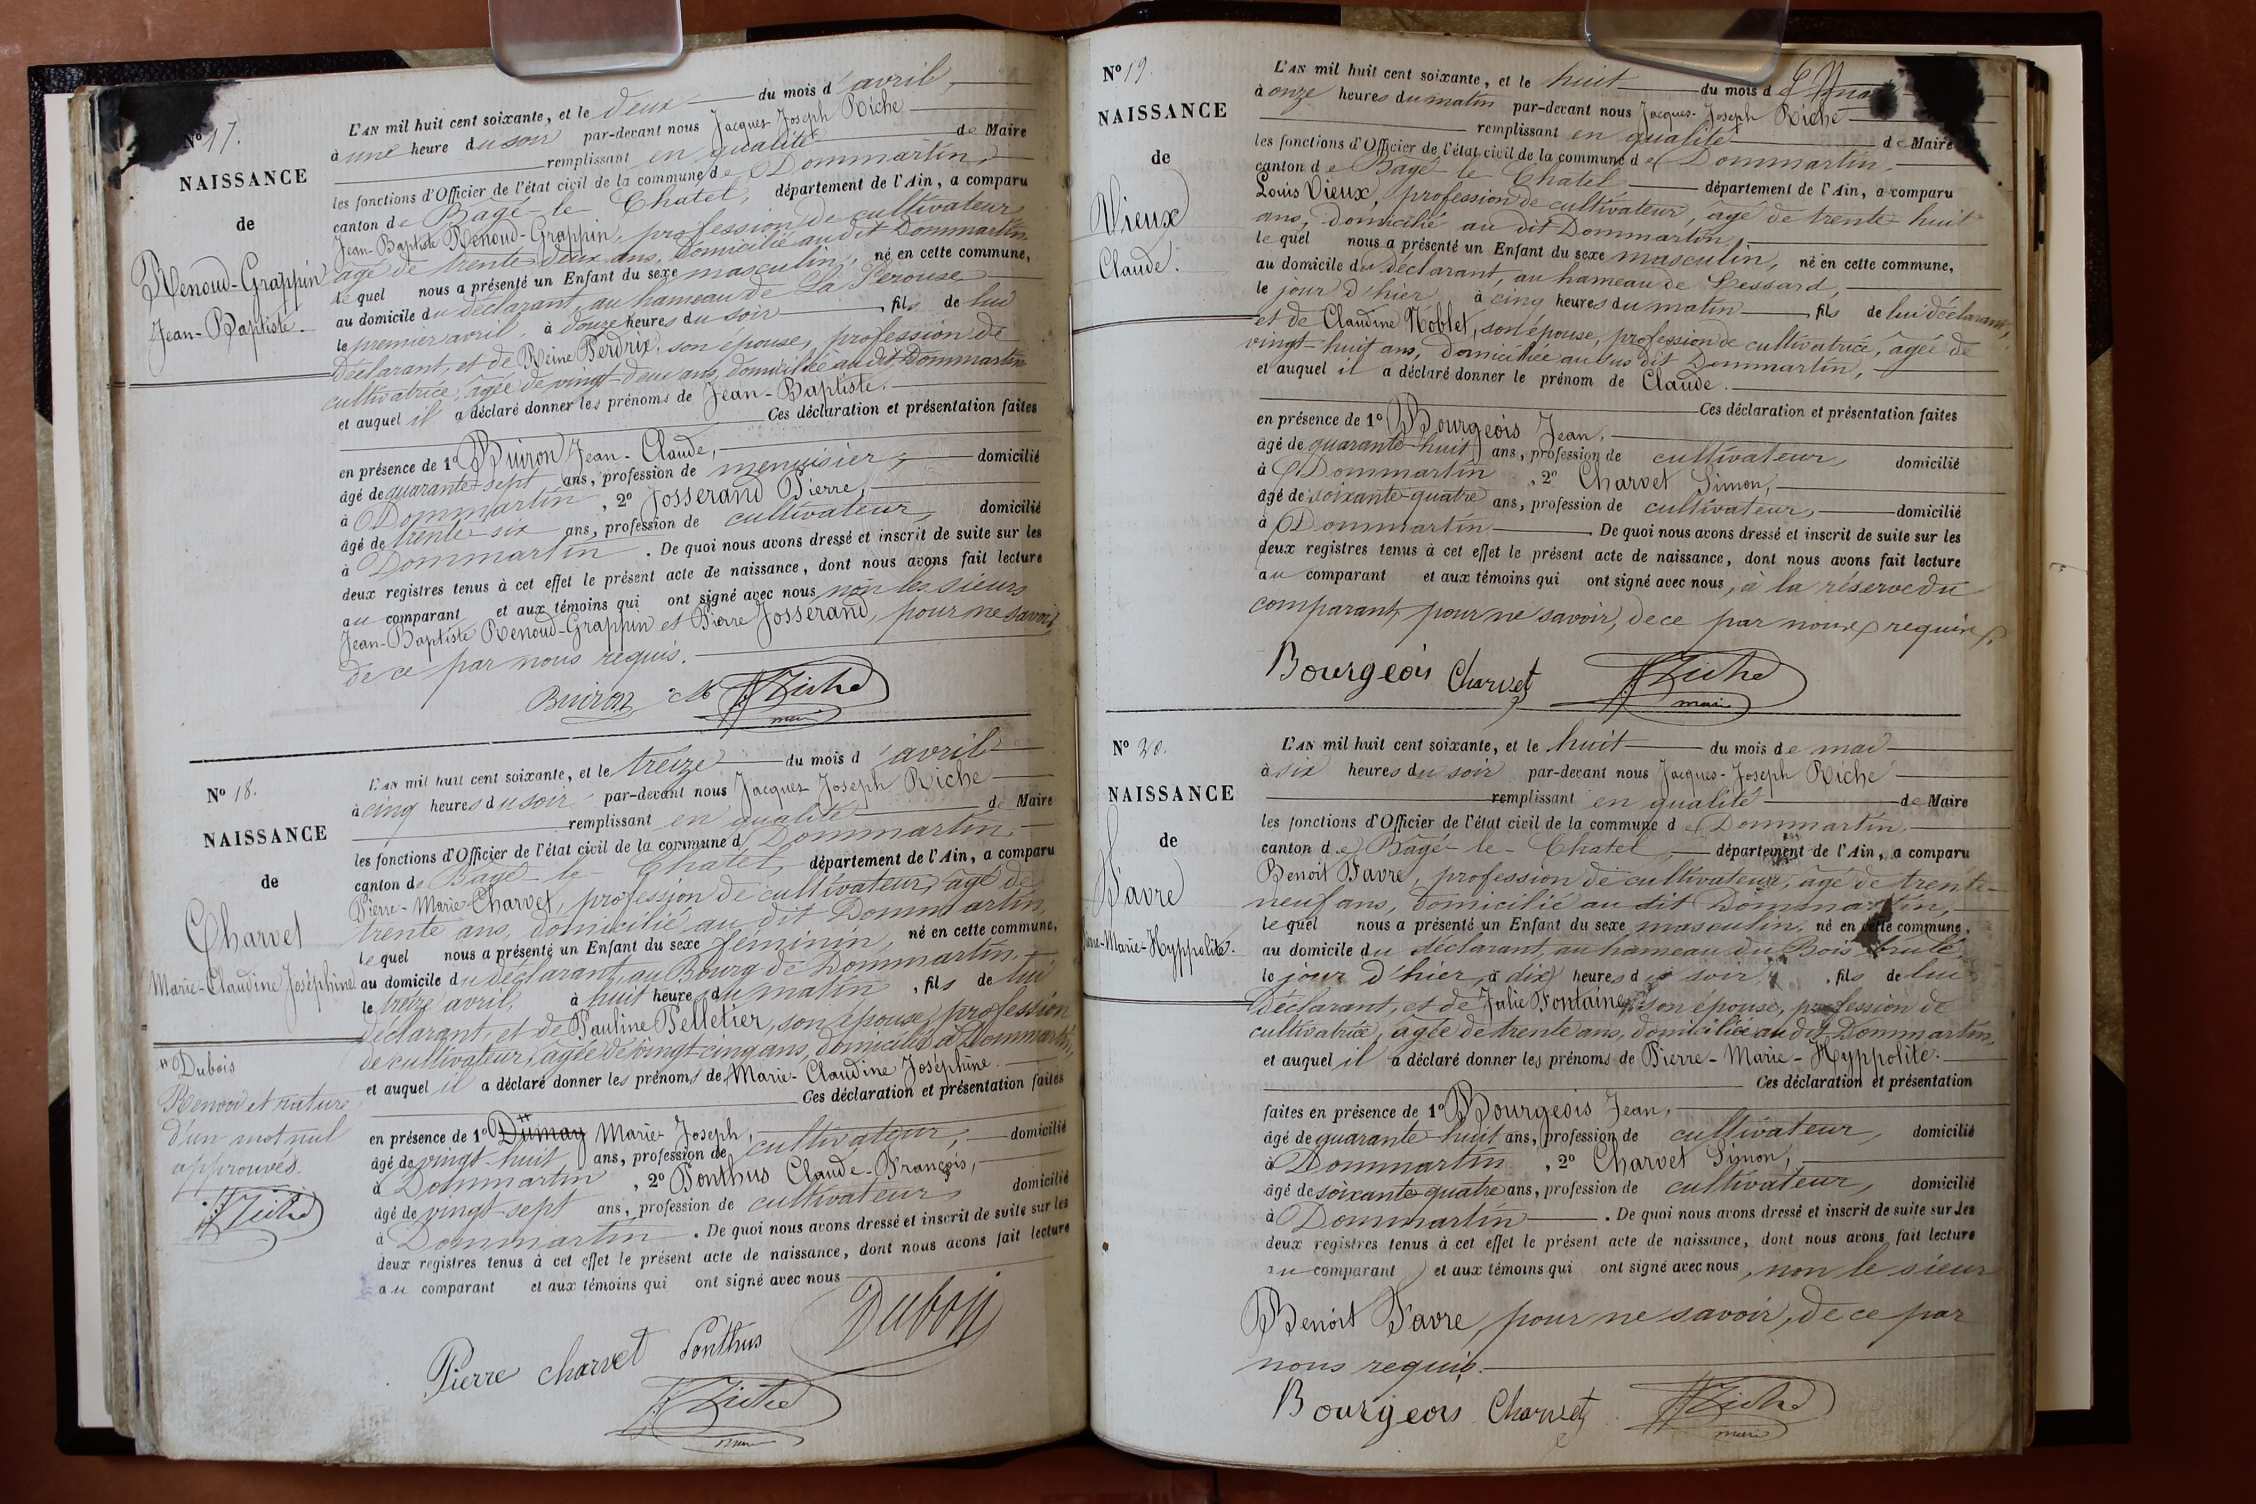 Nº 17.
NAISSANCE
de
Renoud-Grappin
Jean-Baptiste.
L'AN mil huit cent soixante, et le deux du mois d'avril,
à une heure du soir par-devant nous Jacques Joseph Riche
remplissant en qualité de Maire
les fonctions d'Officier de l'état civil de la commune de Dommartin,
canton de Bagé-le-Chatel, département de l'Ain, a comparu
Jean-Baptiste Renoud-Grappin, profession de cultivateur,
âgé de trente-deux ans, domicilié au dit Dommartin,
le quel nous a présenté un Enfant du sexe masculin, né en cette commune,
au domicile du déclarant, au hameau de La Perouse
le premier avril, à douze heures du soir fils de lui
déclarant, et de Reine Perdrix, son épouse, profession de
cultivatrice, âgée de vingt-deux ans, domiciliée au dit Dommartin
et auquel il a déclaré donner les prénoms de Jean-Baptiste.
Ces déclaration et présentation faites
en présence de 1º Buiron Jean-Claude,
âgé de quarante-sept ans, profession de menuisier, domicilié
à Dommartin, 2º Josserand Pierre,
âgé de trente-six ans, profession de cultivateur, domicilié
à Dommartin. De quoi nous avons dressé et inscrit de suite sur les
deux registres tenus à cet effet le présent acte de naissance, dont nous avons fait lecture
au comparant et aux témoins qui ont signé avec nous non les sieurs
Jean-Baptiste Renoud-Grappin et Pierre Josserand, pour ne savoir,
de ce par nous requis.
Buiron JJ Riche
maire
Nº 18.
NAISSANCE
de
Charvet
Marie-Claudine Joséphine
L'AN mil huit cent soixante, et le treize du mois d'avril
à cinq heures du soir par-devant nous Jacques Joseph Riche
remplissant en qualité de Maire
les fonctions d'Officier de l'état civil de la commune d Dommartin,
canton de Bagé-le-Chatel, département de l'Ain, a comparu
Pierre-Marie Charvet, profession de cultivateur, âgé de
trente ans, domicilié au dit Dommartin,
le quel nous a présenté un Enfant du sexe féminin, né en cette commune,
au domicile du déclarant, au Bourg de Dommartin,
le treize avril, à huit heures du matin, fils de lui
déclarant, et de Pauline Pelletier, son épouse, profession
de cultivateur, âgée de vingt-cinq ans, domiciliée à Dommartin,
et auquel il a déclaré donner les prénoms de Marie-Claudine Joséphine.
Ces déclaration et présentation faites
en présence de 1º Dumay Marie-Joseph,
âgé de vingt-huit ans, profession de cultivateur, domicilié
à Dommartin, 2º Ponthus Claude-François,
âgé de vingt-sept ans, profession de cultivateur, domicilié
à Dommartin. De quoi nous avons dressé et inscrit de suite sur les
deux registres tenus à cet effet le présent acte de naissance, dont nous avons fait lecture
au comparant et aux témoins qui ont signé avec nous
# Dubois
Renvoi et rature
d'un mot nul
approuvés.
JJ Riche
Pierre charvet Ponthus Dubois
JJ Riche
maire
Nº 19.
NAISSANCE
de
Vieux
Claude.
L'AN mil huit cent soixante, et le huit du mois de Mai
à onze heures du matin par-devant nous Jacques-Joseph Riche
remplissant en qualité de Maire
les fonctions d'Officier de l'état civil de la commune de Dommartin,
canton de Bagé-le-Chatel département de l'Ain, a comparu
Louis Vieux, profession de cultivateur, âgé de trente-huit
ans, domicilié au dit Dommartin,
le quel nous a présenté un Enfant du sexe masculin, né en cette commune,
au domicile du déclarant, au hameau de Lessard,
le jour d'hier à cinq heures du matin fils de lui déclarant,
et de Claudine Noblet, son épouse, profession de cultivatrice, âgée de
vingt-huit ans, domiciliée au sus dit Dommartin,
et auquel il a déclaré donner le prénom de Claude.
Ces déclaration et présentation faites
en présence de 1º Bourgeois Jean,
âgé de quarante-huit ans, profession de cultivateur, domicilié
à Dommartin, 2º Charvet Simon,
âgé de soixante-quatre ans, profession de cultivateur, domicilié
à Dommartin. De quoi nous avons dressé et inscrit de suite sur les
deux registres tenus à cet effet le présent acte de naissance, dont nous avons fait lecture
au comparant et aux témoins qui ont signé avec nous, à la réserve du
comparant, pour ne savoir, de ce par nous requis.
Bourgeois Charvet JJ Riche
maire
Nº 20.
NAISSANCE
de
Favre
Pierre-Marie-Hyppolite.
L'AN mil huit cent soixante, et le huit du mois de mai
à six heures du soir par-devant nous Jacques-Joseph Riche
remplissant en qualité de Maire
les fonctions d'Officier de l'état civil de la commune de Dommartin,
canton de Bâgé-le-Chatel, département de l'Ain, a comparu
Benoit Favre, profession de cultivateur, âgé de trente-
neuf ans, domicilié au dit Dommartin,
le quel nous a présenté un Enfant du sexe masculin, né en cette commune,
au domicile du déclarant, au hameau du Bois brulé,
le jour d'hier, à dix heures du soir, fils de lui
déclarant, et de Julie Fontaine, son épouse, profession de
cultivatrice, âgée de trente ans, domiciliée au dit Dommartin,
et auquel il a déclaré donner les prénoms de Pierre-Marie-Hyppolite.
Ces déclaration et présentation
faites en présence de 1º Bourgeois Jean,
âgé de quarante-huit ans, profession de cultivateur, domicilié
à Dommartin, 2º Charvet Simon,
âgé de soixante-quatre ans, profession de cultivateur, domicilié
à Dommartin. De quoi nous avons dressé et inscrit de suite sur les
deux registres tenus à cet effet le présent acte de naissance, dont nous avons fait lecture
au comparant et aux témoins qui ont signé avec nous, non le sieur
Benoit Favre, pour ne savoir, de ce par
nous requis.
Bourgeois Charvet JJ Riche
maire